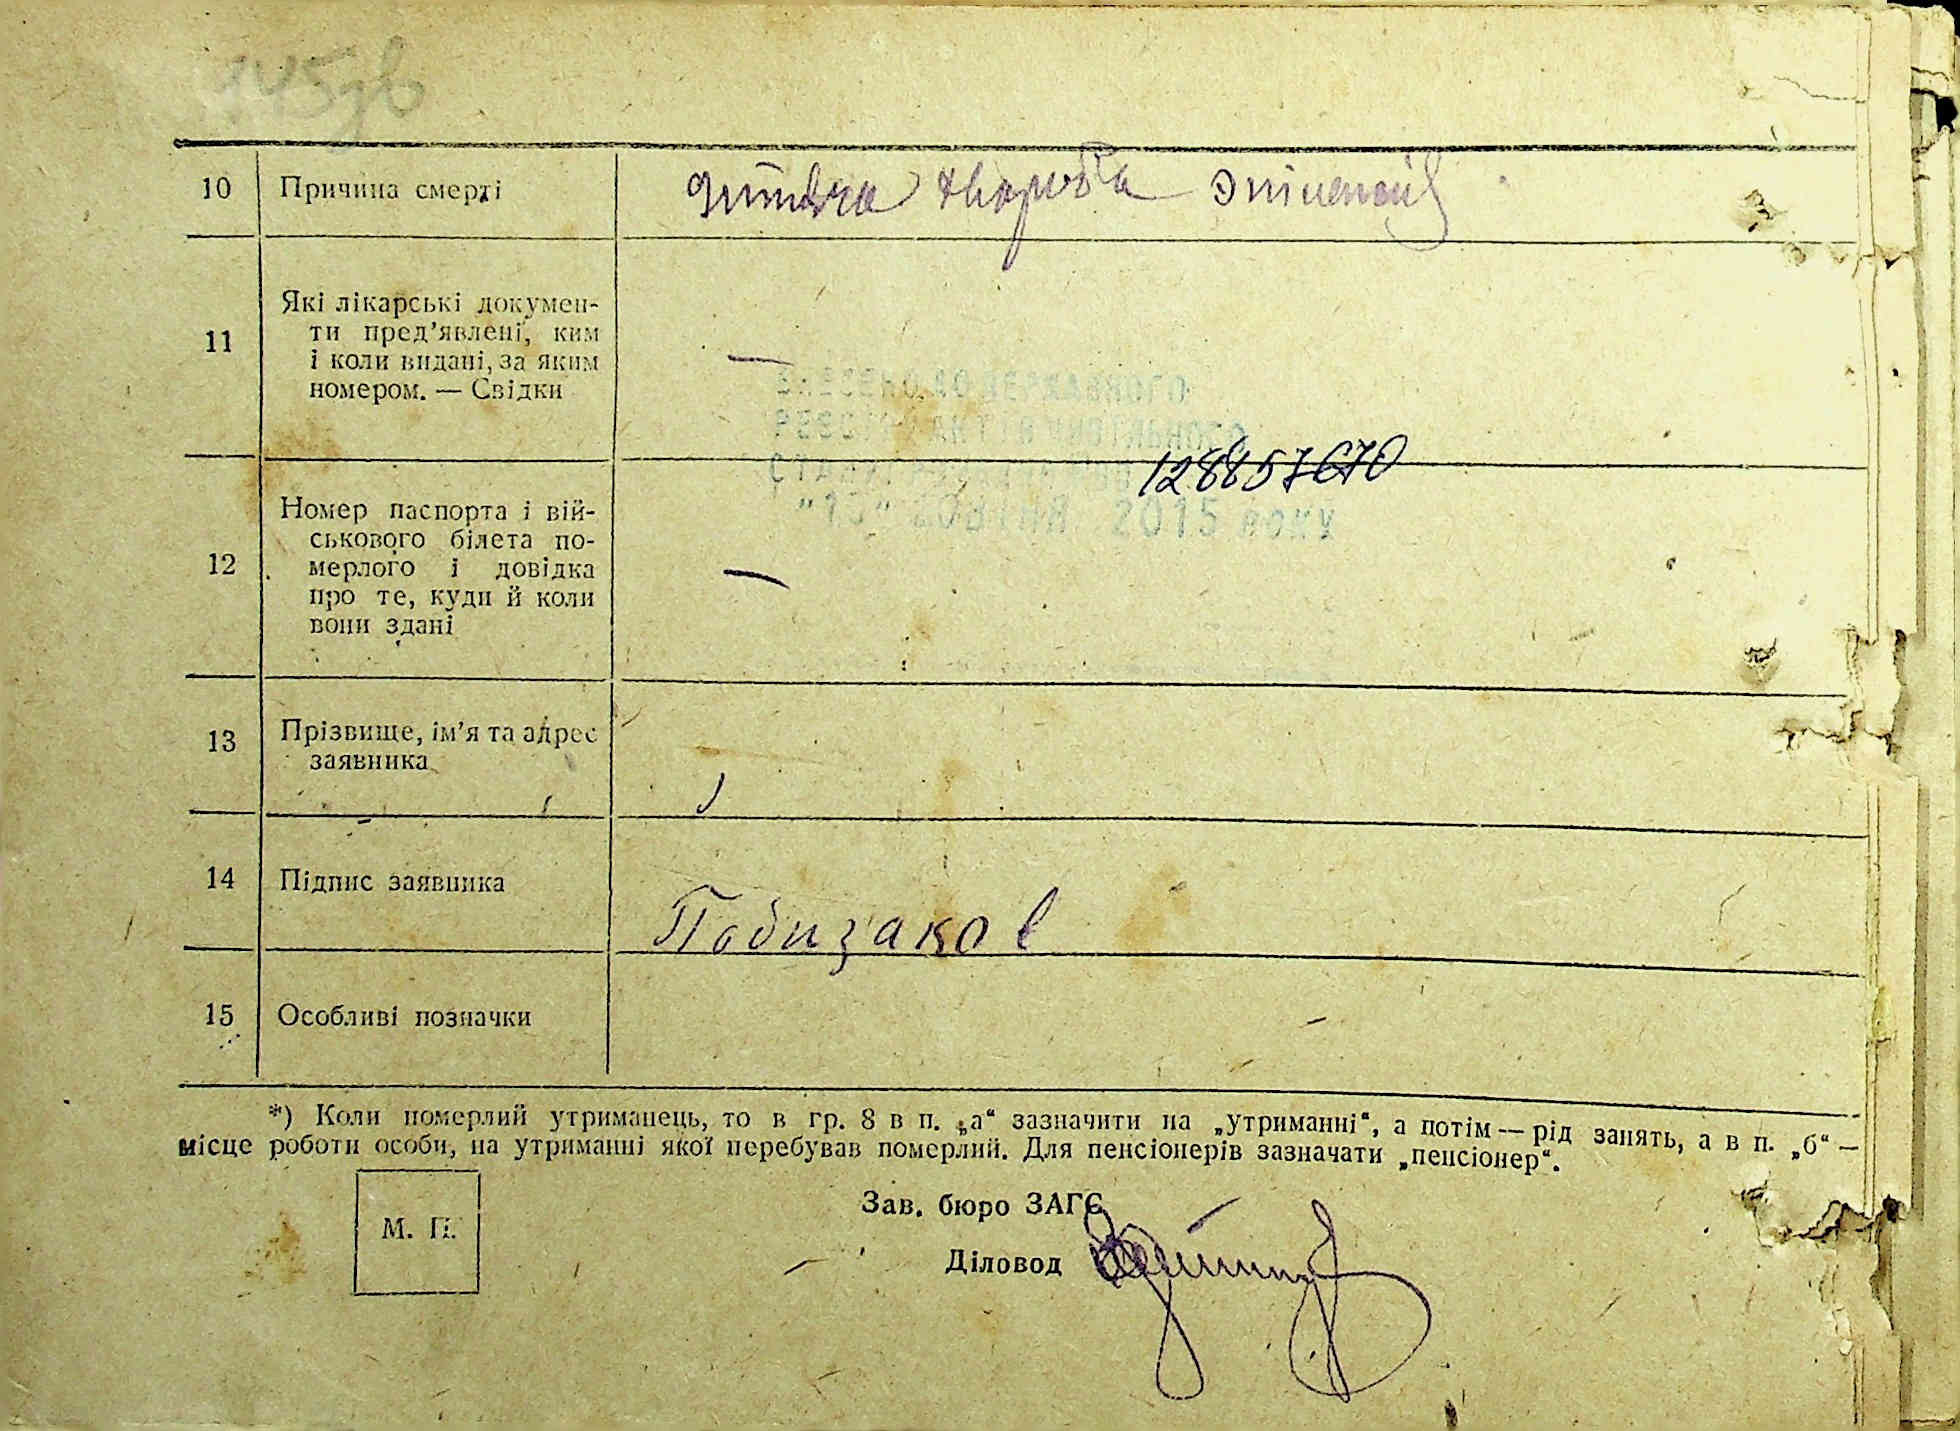 145зв
10 Причина смерті дитяча хвороба эпілепсія
11 Які лікарські докумен-
ти пред’явлені, ким
і коли видані, за яким
номером. — Свідки —
ВНЕСЕНО ДО ДЕРЖАВНОГО
РЕЄСТРУ АКТІВ ЦИВІЛЬНОГО
128857670
"13" 2015 року
12 Номер паспорта і вій-
ськового білета по-
мерлого і довідка
про те, куди й коли
вони здані —
13 Прізвище, ім’я та адрес
заявника
14 Підпис заявника Побизаков
15 Особливі позначки
*) Коли померлий утриманець, то в гр. 8 в п. „а“ зазначити на „утриманні“, а потім — рід занять, а в п. „б“ —
місце роботи особи, на утриманні якої перебував померлий. Для пенсіонерів зазначати „пенсіонер“.
Зав. бюро ЗАГС
М. П.
Діловод